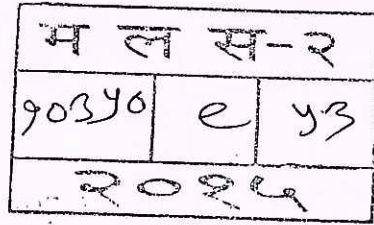 म ल स-२
१०३५० ९ ५३
२०१५